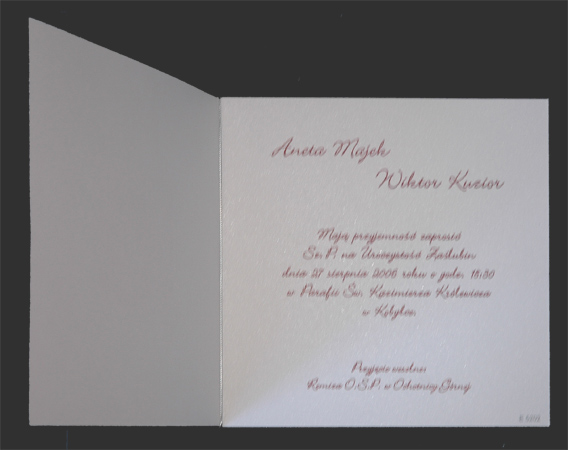 Aneta Majek
Wiktor Kuzior
Mają przyjemność zaprosić
Sz.P. na Uroczystość Zaślubin
dnia 27 sierpnia 2006 roku o godz. 16:30
w Parafii Św. Kazimierza Królewicza
w Kobyłce.
Przyjęcie weselne:
Remiza O.S.P. w